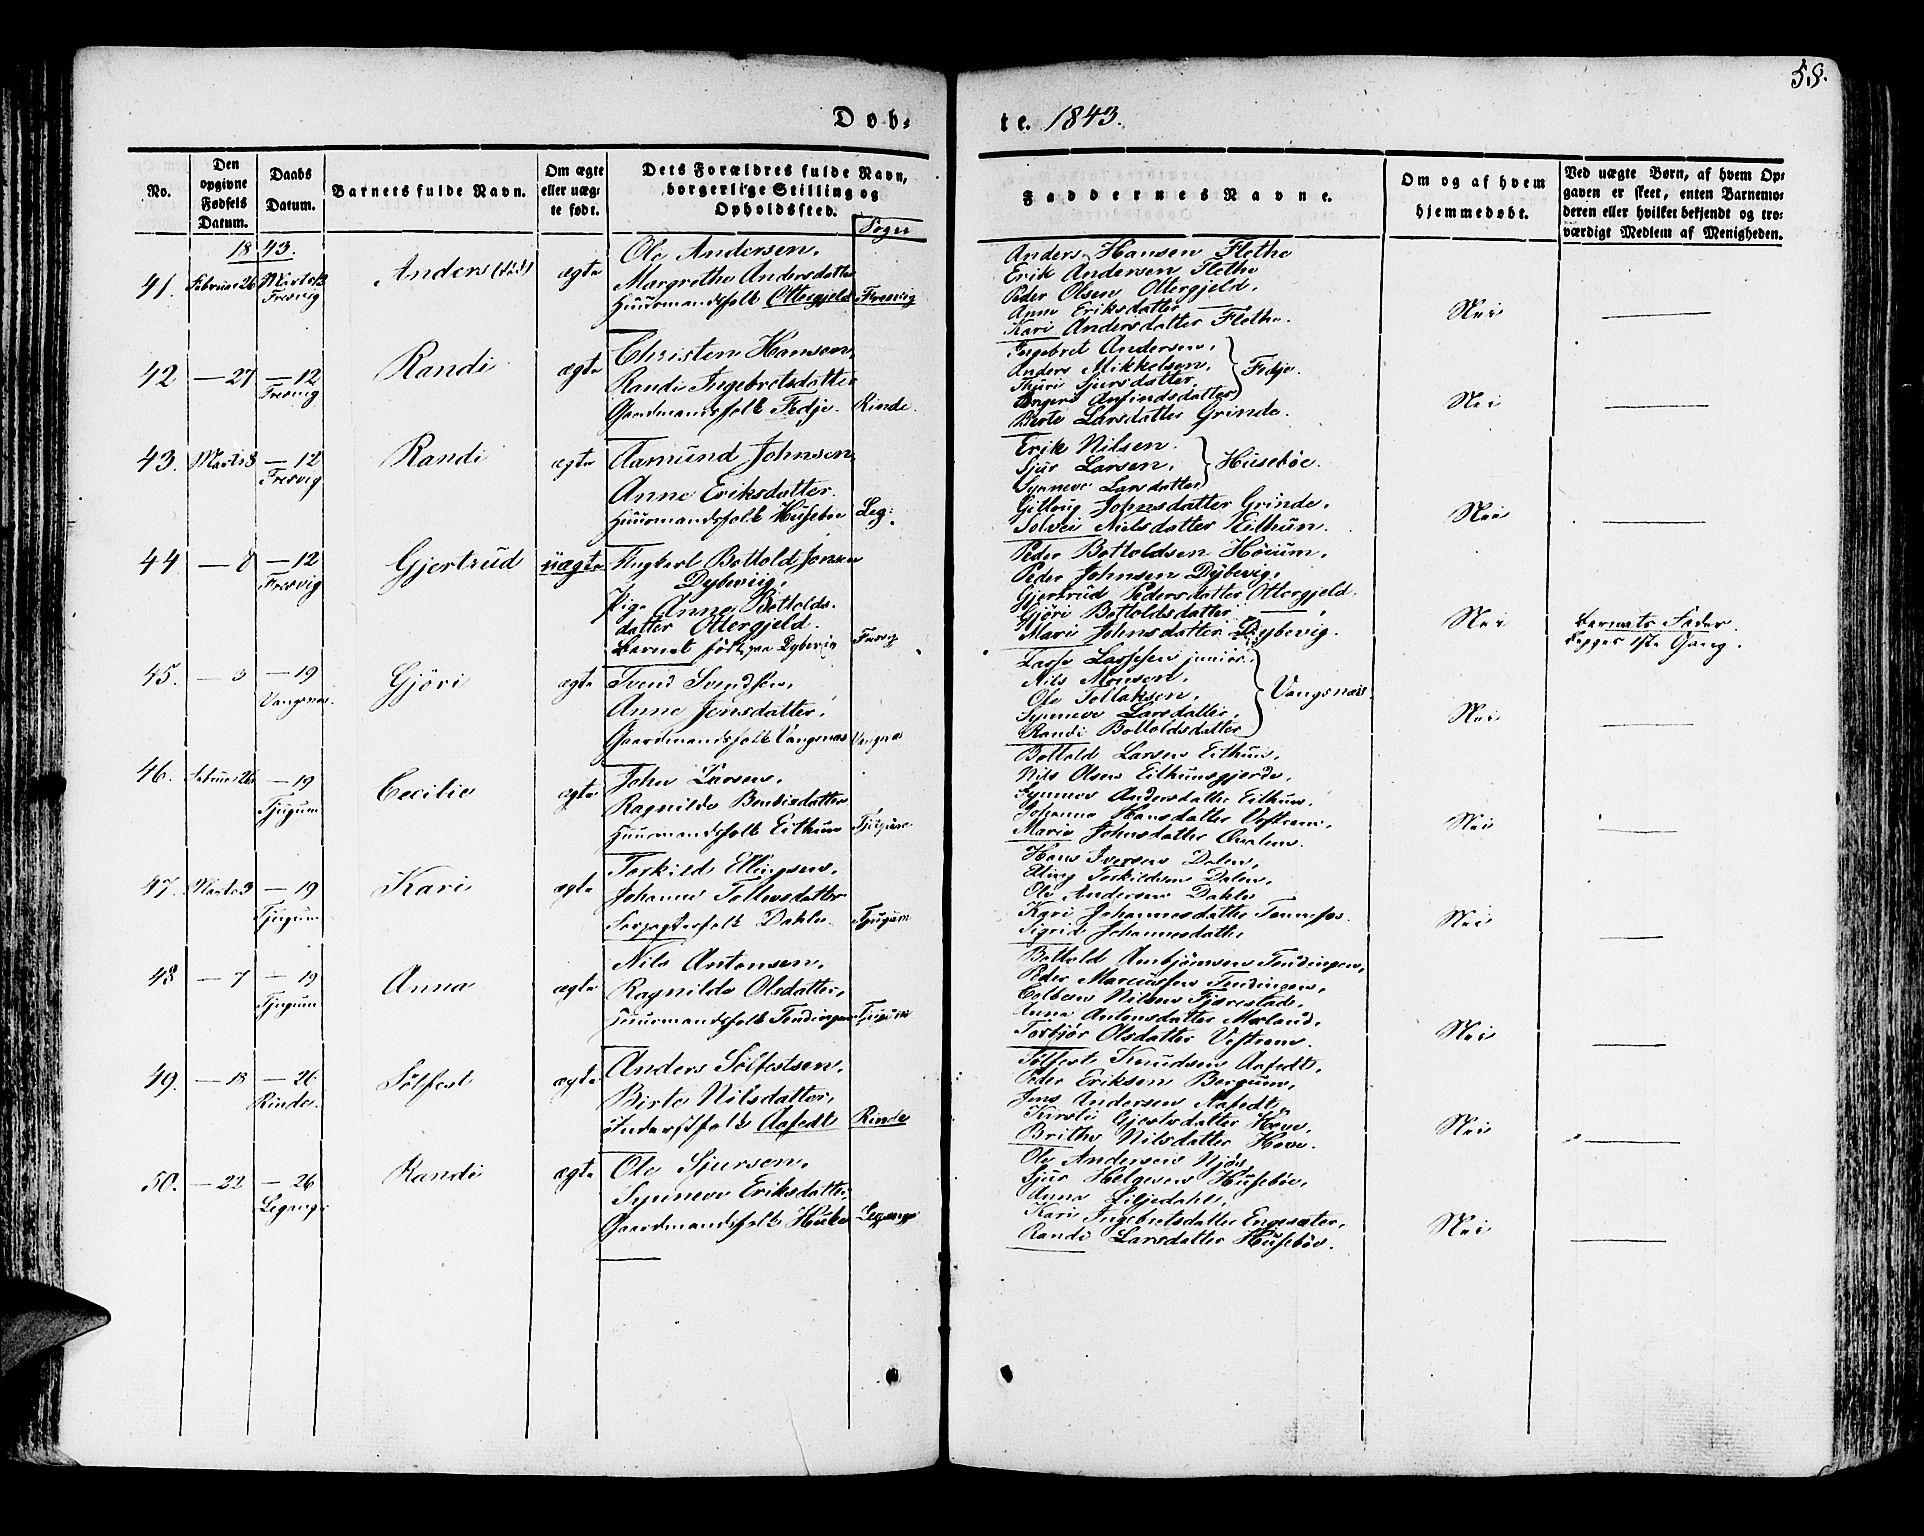 58.
Døb-
te. 1843.
No.
Den opgivne Fødsels Datum.
Daabs Datum.
Barnets fulde Navn.
Om ægte eller uægte født.
Dets Forældres fulde Navn, borgerlige Stilling og Opholdssted.
Sogn
Faddernes Navne.
Om og af hvem hjemmedøbt.
Ved uægte Børn, af hvem Opgaven er skeet, enten Barnemoderen eller hvilket bekjendt og troværdigt Medlem af Menigheden.
1843.
41. Februar 26 Marts Fresvig
Anders
ægte
Ole Andersen,
Margrethe Andersdatter
Huusmandsfolk Ottergjeld Fresvig
Anders Hansen Flethe
Erik Andersen Flethe
Peder Olsen Ottergjeld,
Anne Eriksdatter
Kari Andersdatter Flethe.
Nei
42 — 27 — 12 Fresvig
Randi
ægte
Christen Hansen,
Randi Ingebretsdatter
Gaardmandsfolk Fedje. Rinde.
Ingebret Andersen,
Anders Mikkelsen, Fedje.
Thuri Sjursdatter,
Arfindsdatter
Berte Larsdatter Grinde.
Nei
43. Marts 3 — 12 Fresvig
Randi
ægte
Aamund Johnsen,
Anne Eriksdatter.
Huusmandsfolk Husebøe Leg:
Erik Nilsen.
Sjur Larsen, Husebøe.
Synneve Larsdatter
Johnsdatter Grinde,
Solvei Nielsdatter Eithun.
Nei
44 — 8 — 12 Fresvig
Gjertrud
uægte
Ungkarl Bottold Jonsen
Dybeviig,
Pige Anne Bottolds-
datter Ottergjeld.
Barnet født paa Dybevig Fresvig
Peder Bottoldsen Høium,
Peder Johnsen Dybevig,
Gjertrud Pedersdatter Ottergjeld.
Gjøri Bottoldsdatter —
Mari Johnsdatter Dybevig.
Nei
Barnets Fader.
Begges 1ste Gang.
45. — 3 — 19 Vangsnes.
Gjøri
ægte
Svend Svendsen,
Anne Jensdatter,
Gaardmandsfolk Vangsnes Vangnes
Lasse Lassesen junior.
Nils Monsen,
Ole Tollaksen, Vangsnæs
Synneve Larsdatter,
Randi Bottoldsdatter
Nei
46. Februar 26 — 19 Tjugum
Cecilie
ægte
John Larsen,
Ragnilde Bendixdatter
Huusmandsfolk Eithun Tjugum
Bottold Larsen Eithun,
Nils Olsen Eithunsgjerde,
Synneve Andersdatter Eithun.
Johanne Hansdatter Vestrem,
Marie Johnsdatter Qvalem.
Nei
47. Marts 3 — 19 Tjugum
Kari
ægte
Torkild Ellingsen,
Johanne Tollevsdatter
Forpagterfolk Dahle. Tjugum
Hans Iversen Dalen,
Elling Torkildsen Dalen,
Ole Andersen Dahle
Kari Johannesdatter
Sigrid Johannesdatter
Nei
48 — 7 — 19 Tjugum
Anna
ægte
Nils Antonsen,
Ragnilde Olsdatter,
Huusmandsfolk Tendingen Tjugum
Bottold Anbjørnsen Tendingen,
Peder Marcussen Tendingen,
Colbein Nilsen Fjærestad,
Anna Antonsdatter Mæland,
Torbjør Olsdatter Vestrem.
Nei
49. — 18 — 26 Rinde.
Sølfest
ægte
Anders Sølfestsen,
Birte Nilsdatter,
Inderstfolk Aafedt Rinde
Sølfest Knudsen Aafedt,
Peder Eriksen Bergum,
Jens Andersen Aafedt
Kirsti Gjertsdatter Hove,
Brithe Nilsdatter Hove.
Nei
50. — 22 — 26 Leganger
Randi
ægte
Ole Sjursen,
Synneve Eriksdatter,
Gaardmandsfolk Husebø Leganger
Ole Andersen Njøs
Sjur Helgesen Husebøe,
Anna Liljedahl,
Kari Ingebretsdatter Engesæter,
Randi Larsdatter Husebøe.
Nei